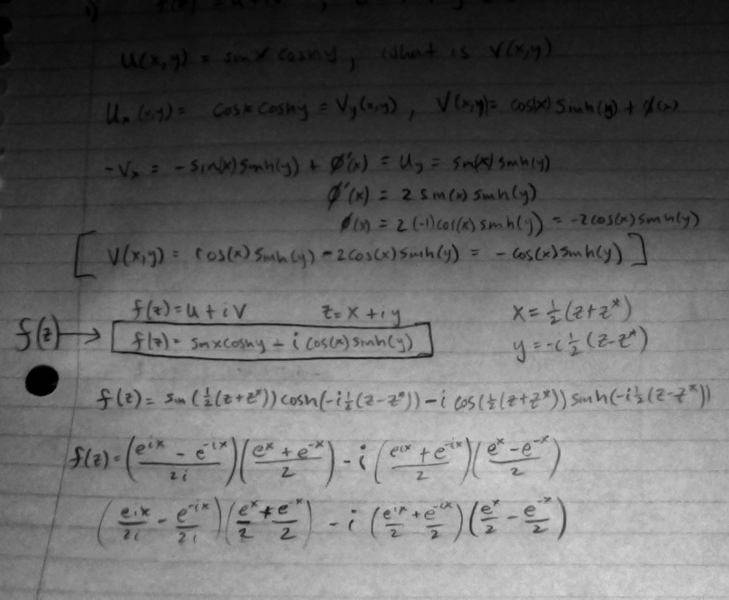 U(x,y) = sinx coshy, what is V(x,y)
Ux(x,y) = cosx coshy = Vy(x,y), V(x,y) = cos(x) sinh(y) + ø(x)
-Vx = -sin(x) sinh(y) + ø'(x) = Uy = sin(x) sinh(y)
ø'(x) = 2 sin(x) sinh(y)
ø(x) = 2(-1)cos(x) sinh(y) = -2cos(x) sinh(y)
[ V(x,y) = cos(x) sinh(y) - 2cos(x) sinh(y) = -cos(x) sinh(y) ]
f(z) = u + iv z = x + iy x = ½(z+z*)
f(z) → f(z) = sinxcoshy - i cos(x) sinh(y) y = -i½(z-z*)
f(z) = sin(½(z+z*)) cosh(-i½(z-z*)) - i cos(½(z+z*)) sinh(-i½(z-z*))
f(z) = ((e^ix - e^-ix)/2i) ((e^x + e^-x)/2) - i ((e^ix + e^-ix)/2) ((e^x - e^-x)/2)
(e^ix/2i - e^-ix/2i) (e^x/2 + e^-x/2) - i (e^ix/2 + e^-ix/2) (e^x/2 - e^-x/2)